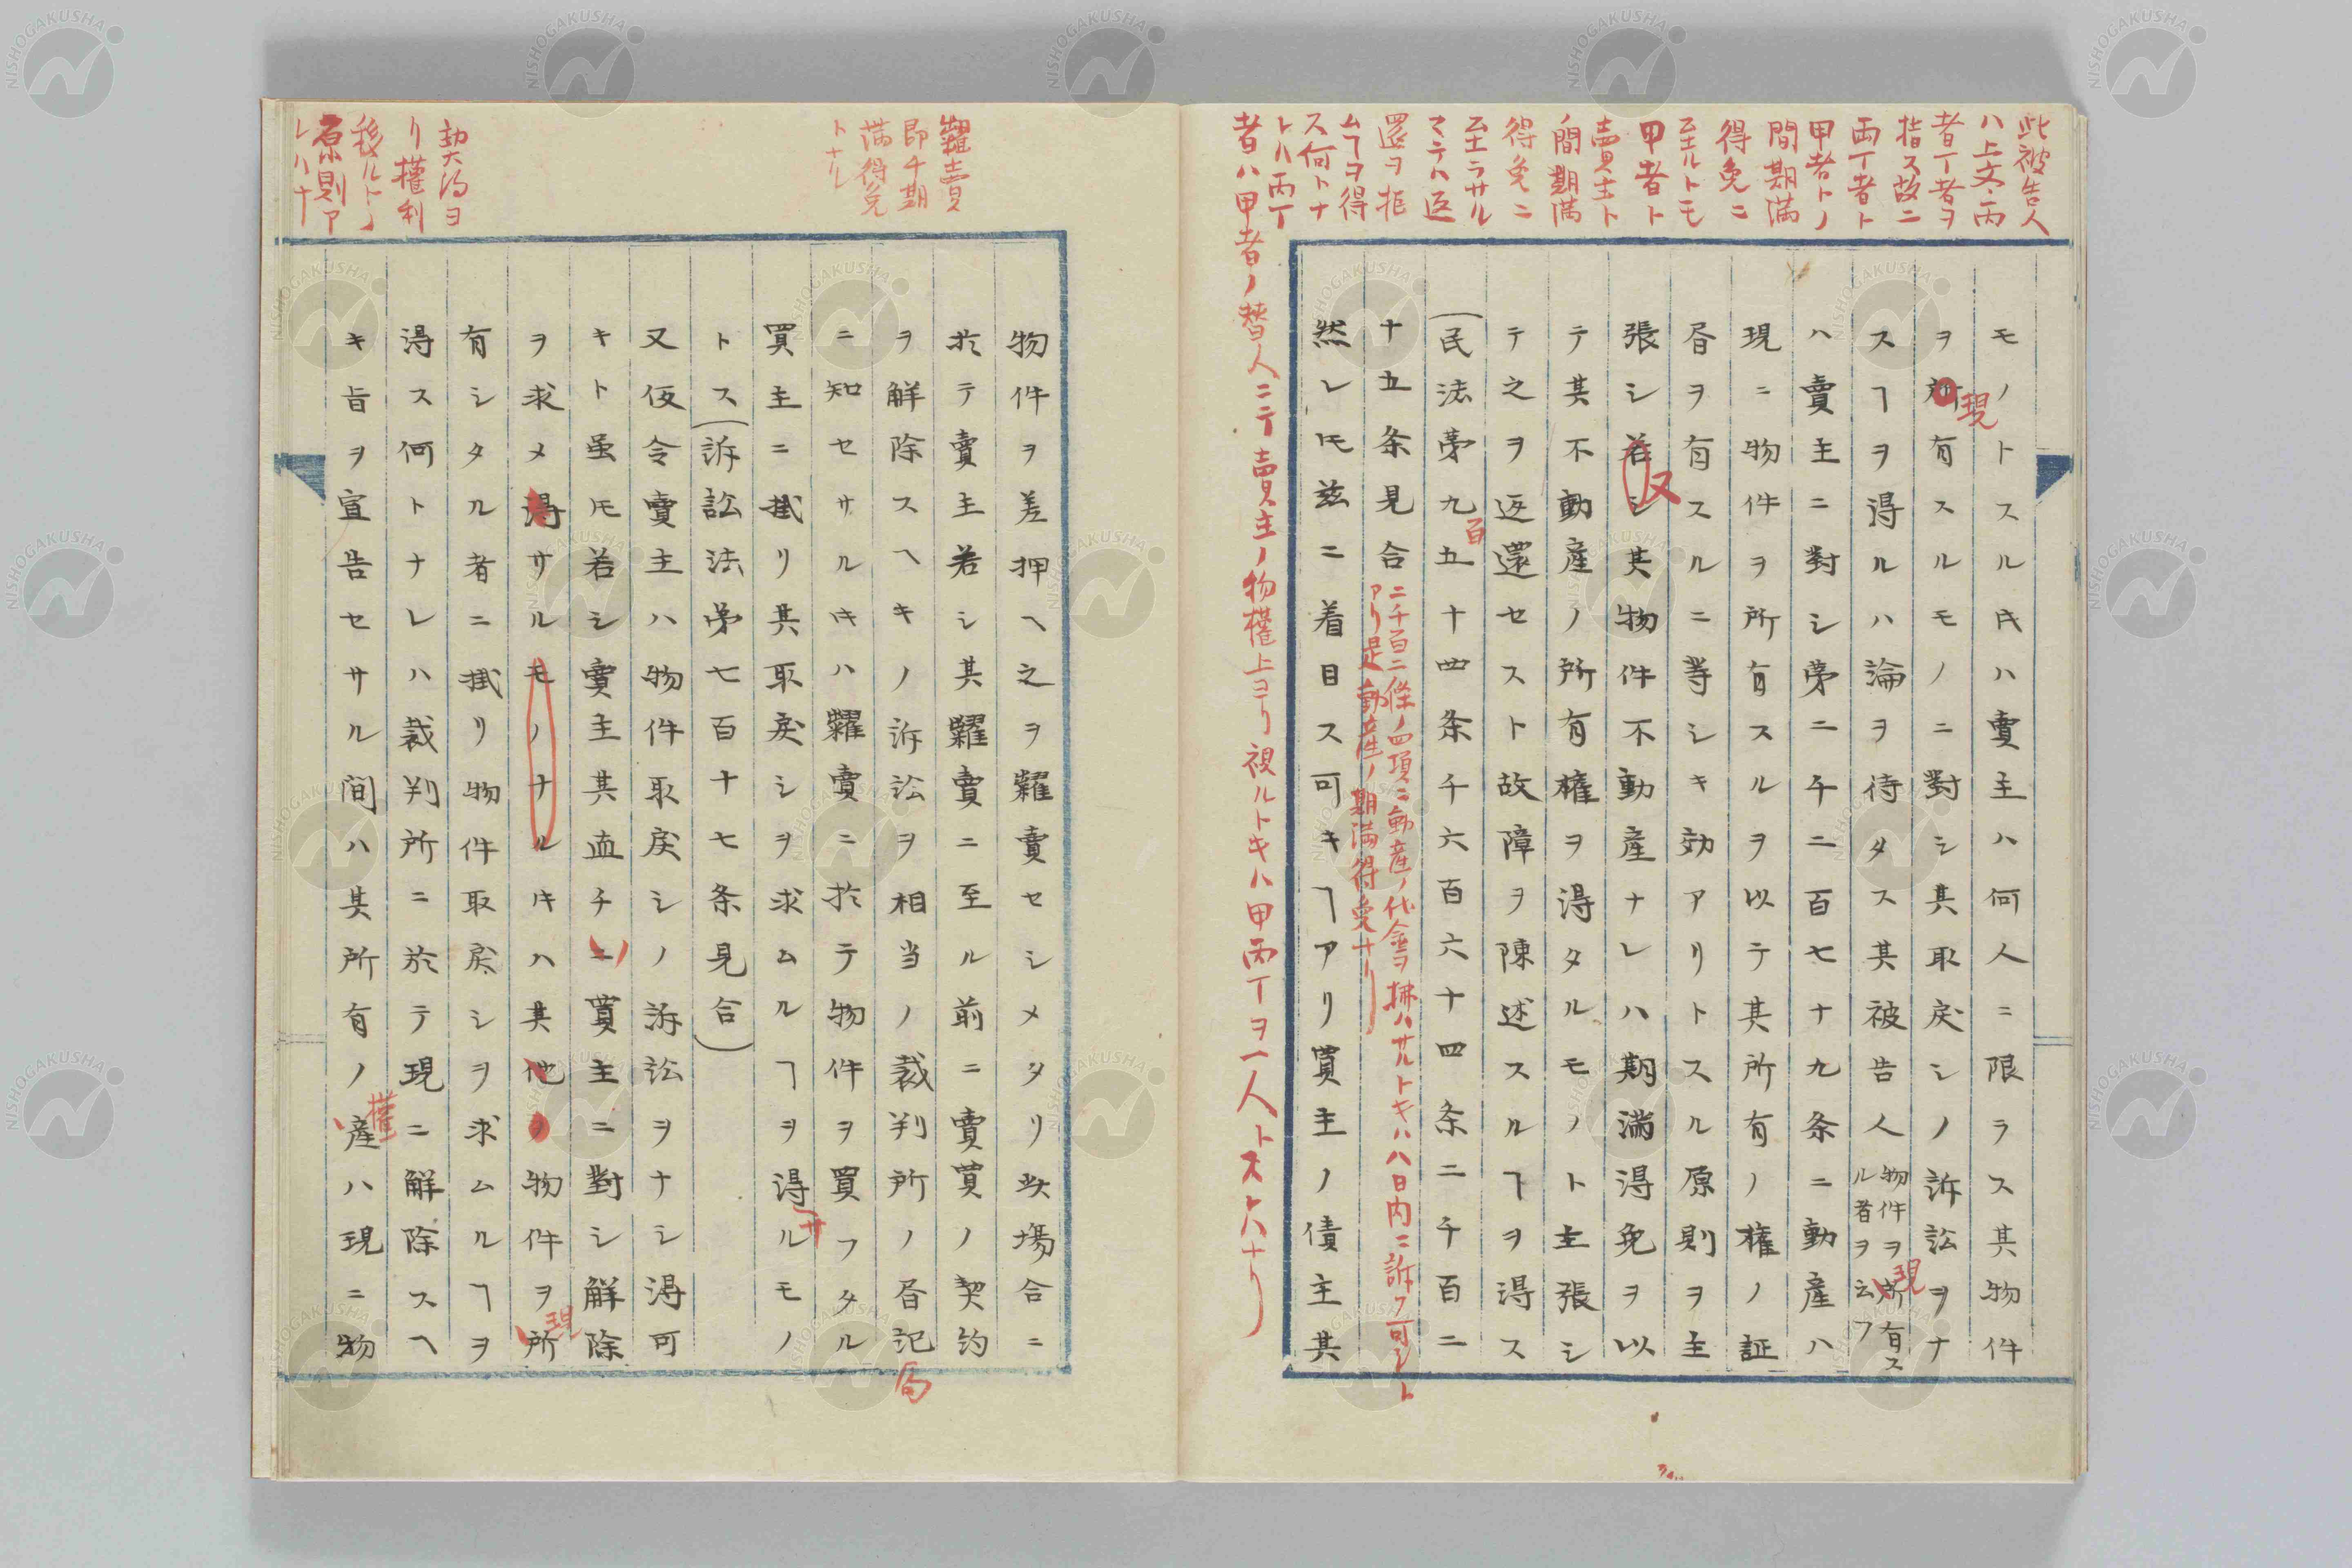 此被告人
ハ上文丙
者丁者ヲ
指ス故ニ
丙丁者ト
甲者トノ
間期満
得免ニ
至ルトモ
甲者ト
賣主ト
ノ間期満
得免ニ
至ラサル
マテハ返
還ヲ拒
ムヿヲ得
ス何トナ
レハ丙丁
者ハ甲者ノ替人ニテ賣主ノ物權上ヨリ視ルトキハ甲丙丁ヲ一人トスレハナリ
モノトスル𪜈ハ賣主ハ何人ニ限ラス其物件
ヲ所有スルモノニ對シ其取戻シノ訴訟ヲナ
現
スヿヲ得ルハ論ヲ待タス其被告人物件ヲ所有スル者ヲ云フ
現
ハ賣主ニ對シ第二千二百七十九条ニ動産ハ
現ニ物件ヲ所有スルヲ以テ其所有ノ権ノ証
昏ヲ有スルニ等シキ効アリトスル原則ヲ主
張シ若シ其物件不動産ナレハ期満得免ヲ以
又
テ其不動産ノ所有権ヲ得タルモノト主張シ
テ之ヲ返還セスト故障ヲ陳述スルヿヲ得ス
(民法第九五十四条千六百六十四条二千百二
百
十五条見合
二千百二條ノ四項ニ動産ノ代金ヲ拂ハサルトキハ八日内ニ訴フ可シト
アリ是動産ノ期満得免ナリ
然レ𪜈茲ニ着目ス可キヿアリ買主ノ債主其
糶賣
即チ期
満得免
トナル
契約ヲ
リ權利
移ルトノ
原則ア
レハナ
物件ヲ差押ヘ之ヲ糶賣セシメタリ此塲合ニ
於テ賣主若シ其糶賣ニ至ル前ニ賣買ノ契約
ヲ解除スヘキノ訴訟ヲ相当ノ裁判所ノ昏記
局
ニ知セサルキハ糶賣ニ於テ物件ヲ買フタル
買主ニ掛リ其取戻シヲ求ムルヿヲ得ルモノ
サ
トス(訴訟法第七百十七条見合)
又仮令賣主ハ物件取戻シノ訴訟ヲナシ得可
キト虽𪜈若シ賣主其血チニ買主ニ對シ解除
ヲ求メ得サルモノナルキハ其他ヲ物件ヲ所
現
有シタル者ニ掛リ物件取戻シヲ求ムルヿヲ
得ス何トナレハ裁判所ニ於テ現ニ解除スヘ
キ旨ヲ宣告セサル間ハ其所有ノ産ハ現ニ物
權